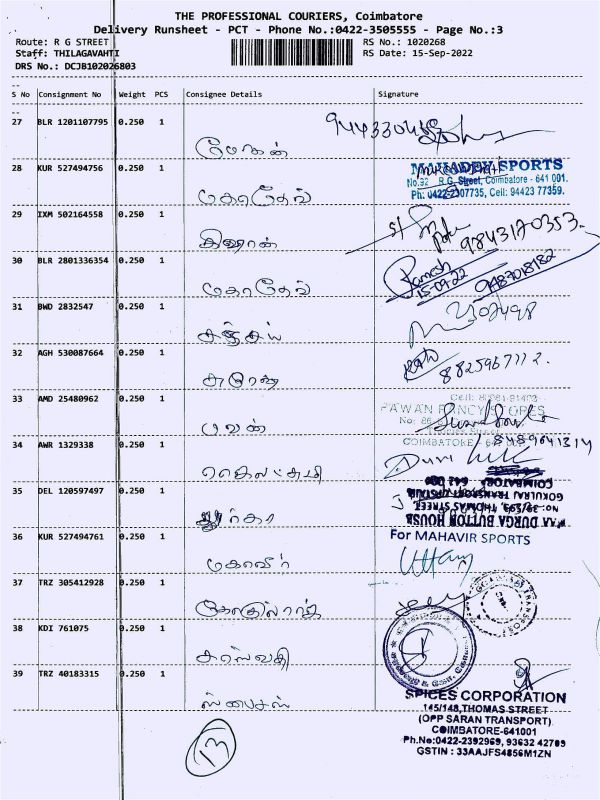 THE PROFESSIONAL COURIERS, Coimbatore
Delivery Runsheet - PCT - Phone No.:0422-3505555 - Page No.:3
Route: R G STREET
RS No.: 1020268
Staff: THILAGAVAHTI
RS Date: 15-Sep-2022
DRS No.: DCJB102026803
S No Consignment No Weight PCS Consignee Details Signature
27 BLR 1201107795 0.250 1
மோகன்
28 KUR 527494756 0.250 1
மகாதேவ்
MAHADEV SPORTS
No.32 R.G. Street, Coimbatore - 641 001.
Ph: 0422-2307735, Cell: 94423 77359.
29 IXM 502164558 0.250 1
9843170353.
30 BLR 2801336354 0.250 1
மகாதேவ்
Ramesh
15-09-22
9487018182
31 BWD 2832547 0.250 1
சஞ்சய்
32 AGH 530087664 0.250 1
8825967112.
33 AMD 25480962 0.250 1
பவன்
PAWAN FANCY STORES
COIMBATORE
34 AWR 1329338 0.250 1
8489641314
35 DEL 120597497 0.250 1
துர்கா
DURGA BUTTON HOUSE
No: 39/599, THOMAS STREET,
GOKULRAJ TRANSPORT UPSTAIR
COIMBATORE
36 KUR 527494761 0.250 1
மகாவீர்
For MAHAVIR SPORTS
Uttam
37 TRZ 305412928 0.250 1
கோகுல்ராஜ்
38 KDI 761075 0.250 1
சரஸ்வதி
39 TRZ 40183315 0.250 1
ஸ்பைசஸ்
SPICES CORPORATION
145/148, THOMAS STREET
(OPP SARAN TRANSPORT)
COIMBATORE-641001
Ph.No:0422-2392969, 93632 42709
GSTIN : 33AAJFS4856M1ZN
13